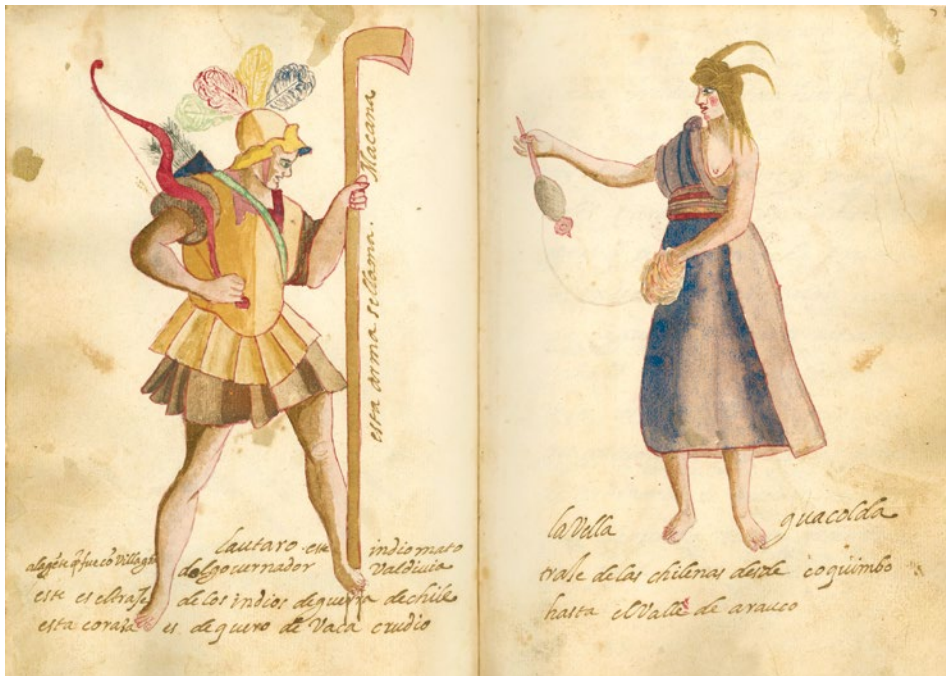 esta arma sellama. Macana
lautaro este indio mato
alagẽte q̃ fue cõ Villagrã del gouernador Valdiuia
este es eltraje de los indios de guerra de chile
esta corasa es de quero de Vaca crudio
la Vella guacolda
traje de las chilenas desde coquimbo
hasta el Valle de arauco